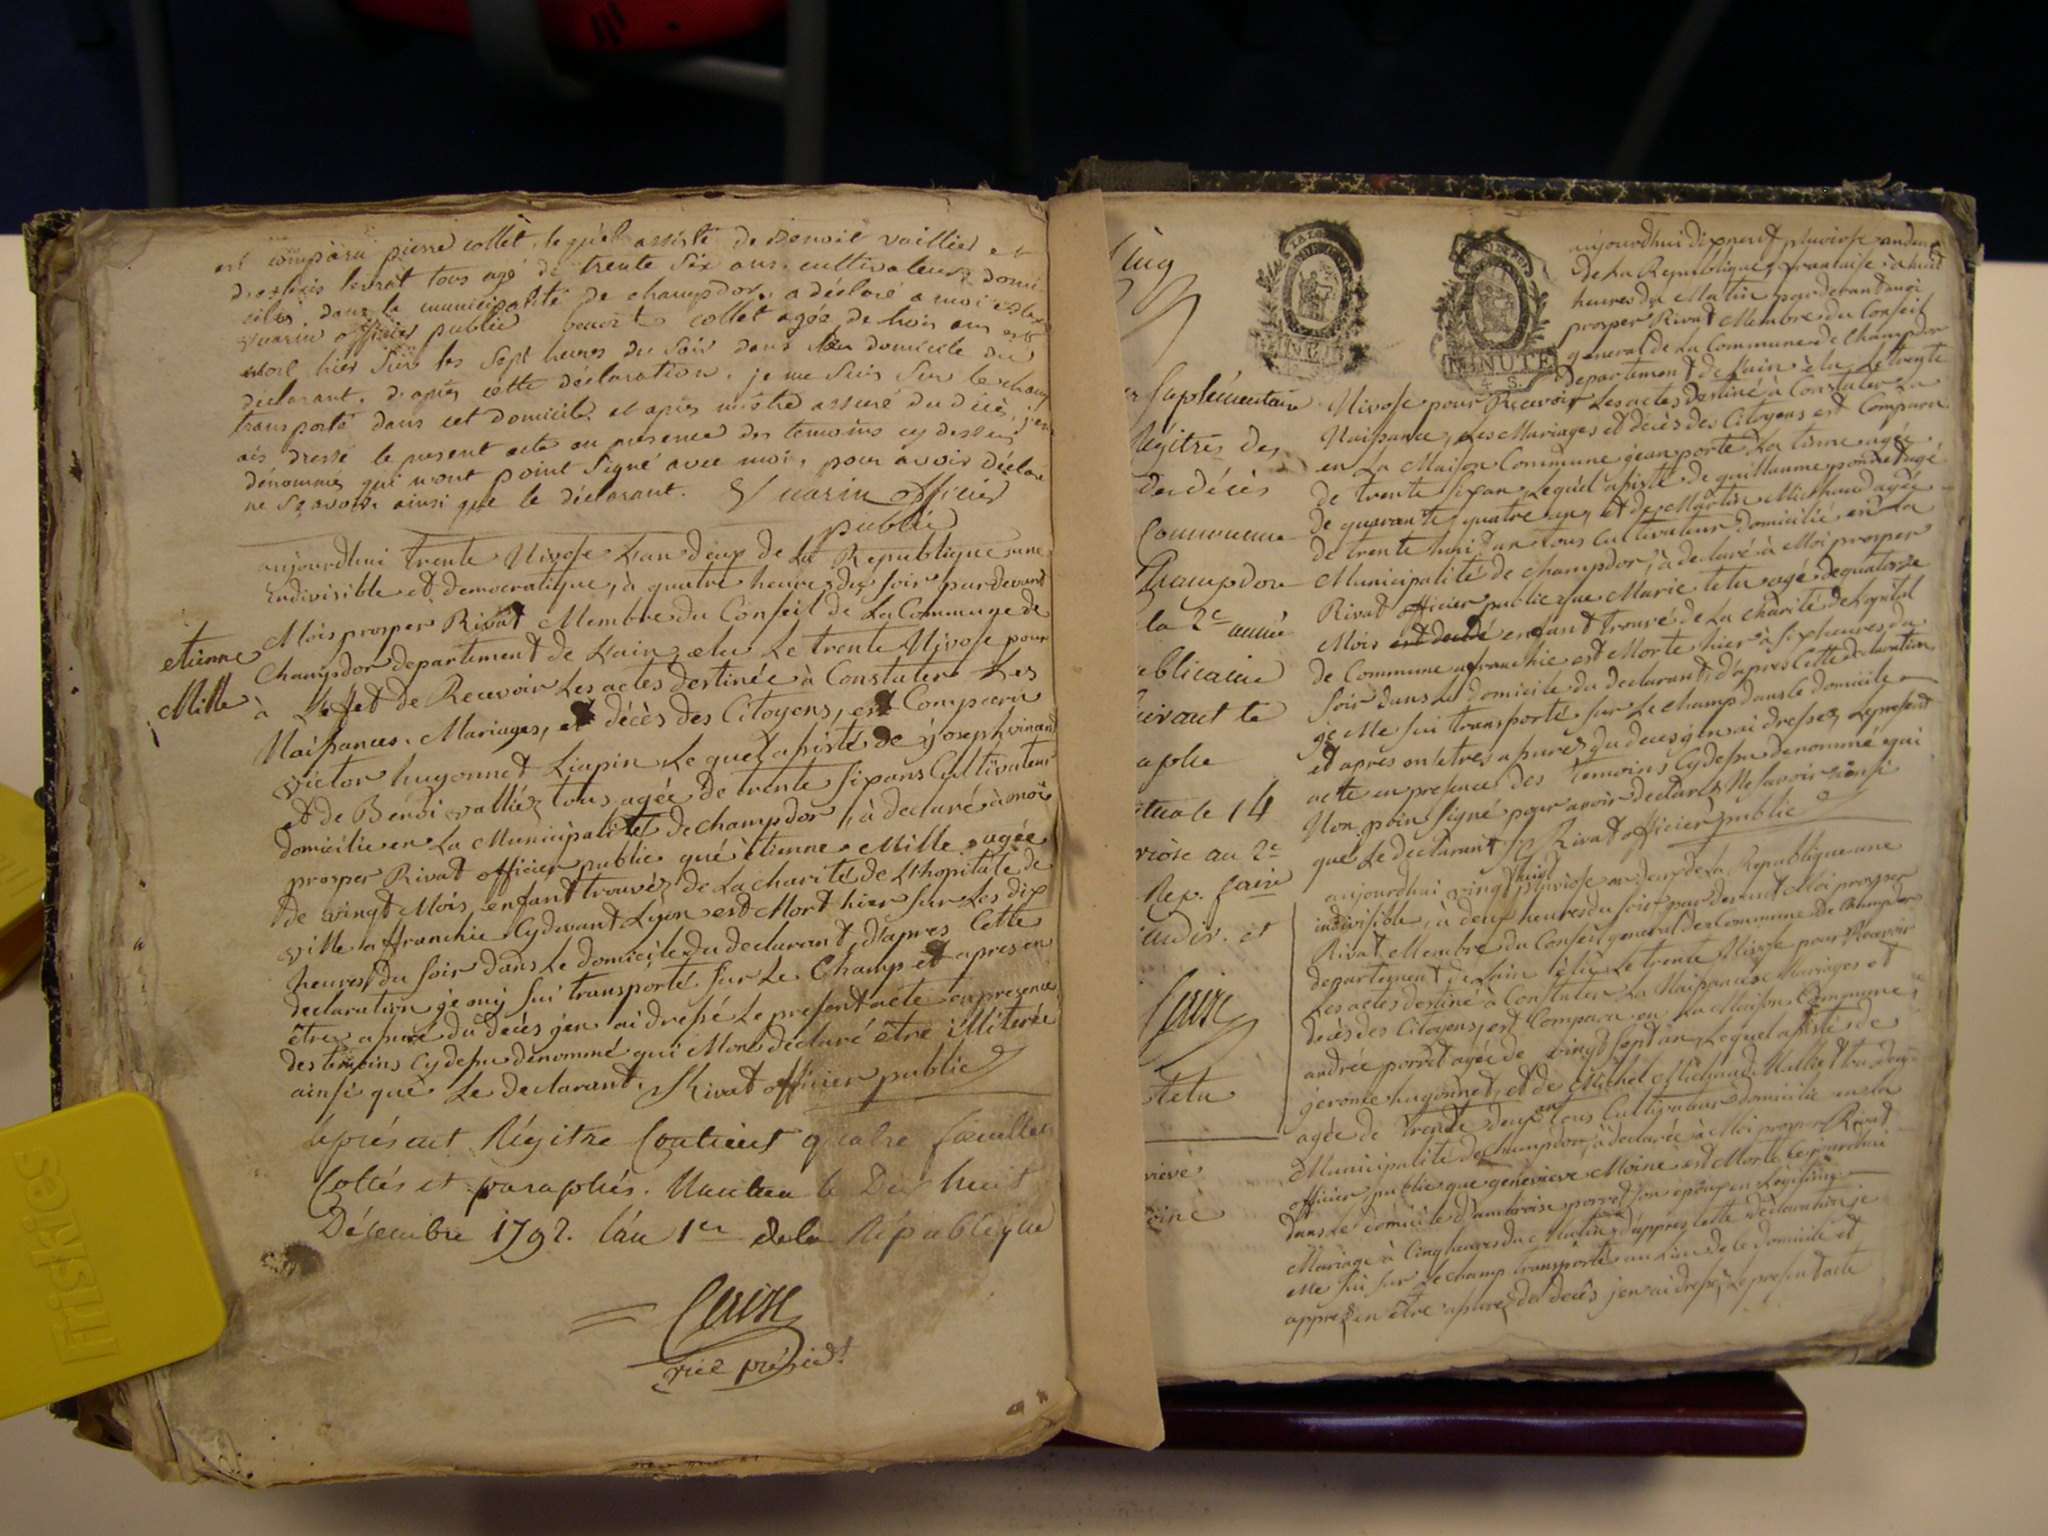 est comparu pierre collet, lequel assisté de Benoit vaillier et
tous agé de trente six ans cultivateurs domi
ciliés dans la municipalité de champdor, a déclaré a moi
officier public collet agée de trois ans est
mort hier sur les sept heures du soir dans le domicile du
declarant. d'aprés cette déclaration. je me suis sur le champ
transporté dans cet domicile et apres mestre assuré du décès, j'en
ais dressé le present acte en presence des temoins cy dessus
dénommes qui n'ont point signé avec moi, pour avoir déclare
ne sçavoir ainsi que le déclarant. officier
public
aujourdhui trente Nivose Lan deux de la Republique une
indivisible et democratique, à quatre heures du soir pardevant
Moi prosper Rivat Membre du Conseil de La Commune de
etienne
Mille
Champdor departement de Lain elu Le trente Nivose pour
à Leffet de Recevoir Les actes destinée à Constater Les
Naissances, Mariages, et décès des Citoyens, est Comparu
victor hugonnet Liapin Lequel assisté de joseph vinand
et de Benoi valliéz tous agée de trente six ans Cultivateur
domicilie en La Municipalité de champdor, à declaré à moi
prosper Rivat officier public que etienne Mille agée
de vingt Mois enfant trouvéz de La charité de Lhopitale de
ville affranchie Cydevant Lyon est Mort hier sur Les dix
heures du soir dans Le domicile du declarant, d'apres Cette
declaration je my sui transporté sur Le Champ et apres en
être assuré du decès jen ai dressé Le present acte en presence
des temoins Cydessu denommé qui Mon declaré être illiterée
ainsi que Le declarant. Rivat officier public
Le présent Régitre Contient quatre feuilles
Cottés et paraphés. Nantua le Dix huit
Décembre 1792. l'an 1er de la République
vice présid.t
Suplémentaire
Régitres des
des décès
Commune
Champdor
la 2e année
ublicaine
uivant le
14
viose an 2e
Rep. faire
indiv. et
tetu
vieve
oine
MINUTE
4. S.
aujourdhui dix neuf pluviose an deux
de La Republique francaise à huit
heures du Matin pardevant moi
prosper Rivat Membre du Conseil
general de La Commune de Champdor
departement de Lain élu Le trente
Nivose pour Recevoir Les actes destiné à Constater La
Naissance, Les Mariages et décès des Citoyens est Comparu
en La Maison Commune jean porte La tisme agée
de trente six an, Lequel assisté de guillaume porret agé
de quarante quatre an, et de Martin Michaud agée
de trente huit an tous Cultivateur domicilié en La
Municipalité de champdor, à declaré à Moi prosper
Rivat officier public que Marie tetu agé de quatorze
Mois est decedé enfant trouvé de La charité de Lopital
de Commune afranchie est Morte hier à six heures du
soir dans Le domicile du declarant, d'apres Cette declaration
je Me sui transporté sur Le champ dans le domicile
et apres en letres assurez du deces jen ai dressez Le present
acte en presence des temoins Cydessu denommé qui
Non poin signé pour avoir declarez Ne savoir ainsi
que Le declarant Rivat officier public
aujourdhui vingt huit pluviose an deux de La Republique une
indivisible, à deux heures du soir par devant Moi prosper
Rivat Membre du Conseil general de La Commune de Champdor
departement de Lain élu Le trente Nivose pour Recevoir
Les actes destiné à Constater La Naissances Mariages et
decès des Citoyens, est Comparu en La Maison Commune
andrée porret agée de vingt sept an, Lequel assisté de
jerome hugonnet, et de Michel Michaud
agée de trente deux an tous Cultivateur domicilie en La
Municipalité de champdor, à declarée à Moi prosper Rivat
officier public que genevieve Moine est Morte Cejourdhui
dans Le domicile d'ambroise porret son epoux en Legitime
Mariage à Cinq heures du Matin, d'appres Cette declaration je
Me sui sur Le champ transporté au Lieu de le domicile et
appres en être assurez du decès jen ai dressez Le present acte